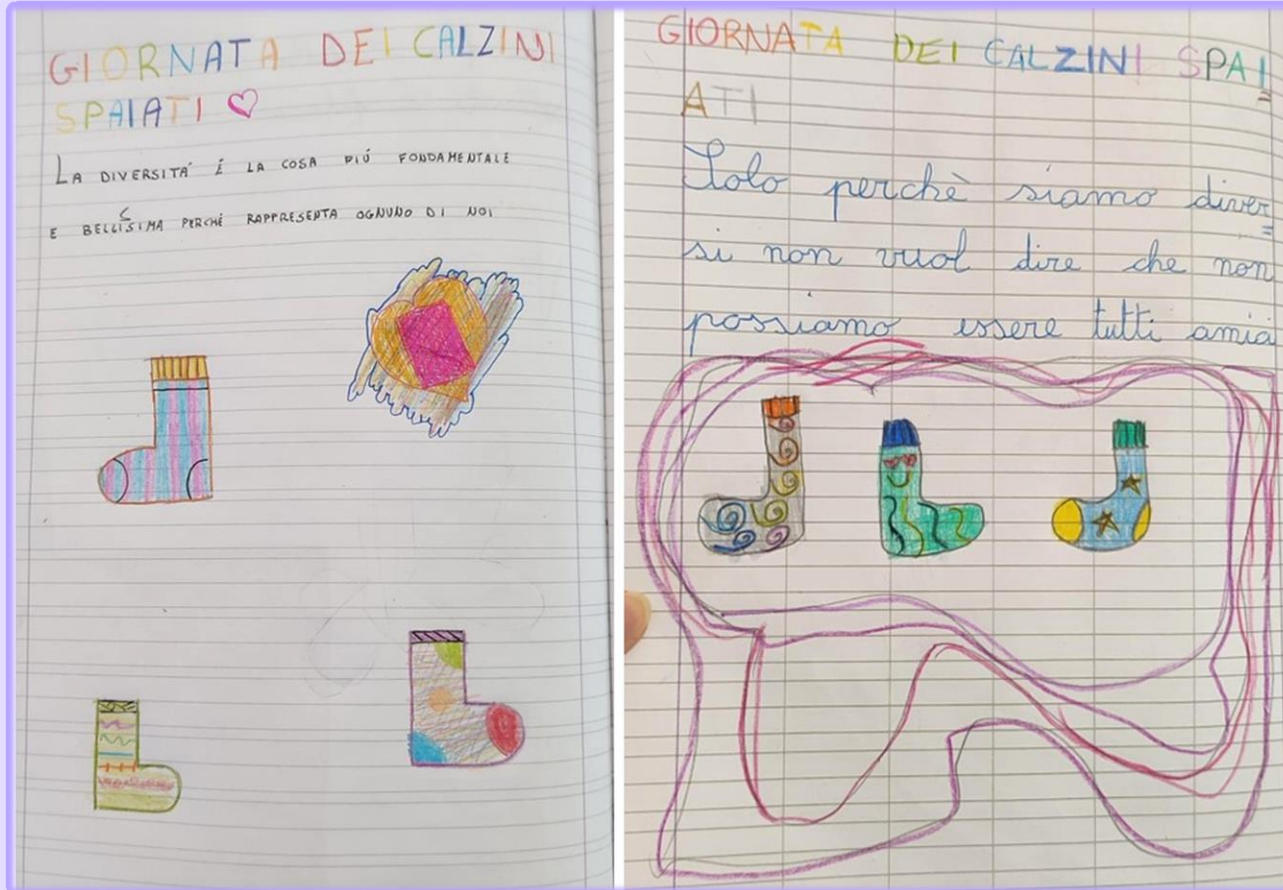 GIORNATA DEI CALZINI
SPAIATI
LA DIVERSITÁ É LA COSA PIÚ FONDAMENTALE
E BELLISSIMA PERCHÉ RAPPRESENTA OGNUNO DI NOI
GIORNATA DEI CALZINI SPAI=
ATI
Solo perchè siamo diver=
si non vuol dire che non
possiamo essere tutti amici